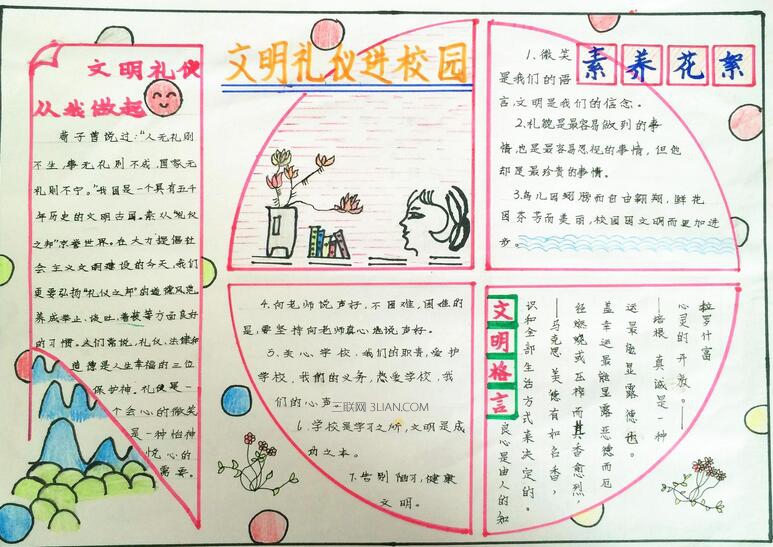 文明礼仪
从我做起
荀子曾说过:“人无礼则
不生,事无礼则不成,国家无
礼则不宁。”我国是一个具有五千
年历史的文明古国。素以“礼仪
之邦”京誉世界。在大力提倡社
会主义文明建设的今天,我们
更要弘扬“礼仪之邦”的道德风范
养成举止、谈吐、着装等方面良好
的习惯。人们常说,礼仪、法律和
道德是人生幸福的三位
保护神。礼仪是一
个会心的微笑
是一种怡神
悦心的
需要。
文明礼仪进校园
素养花絮
1.微笑
是我们的语
言,文明是我们的信念。
2.礼貌是最容易做到的事
情,也是最容易忽视的事情,但他
却是最珍贵的事情。
3.鸟儿因翅膀而自由翱翔,鲜花
因芬芳而美丽,校园因文明而更加进
步。
4.向老师说声好,不困难,困难的
是,要坚持向老师真心地说声好。
5.关心学校,我们的职责,爱护
学校,我们的义务,热爱学校,我
们的心声。
三联网 3LIAN.COM
6.学校是学习之所,文明是成
功之本。
7.告别陋习,健康
文明。
文明格言
拉罗什富
心灵的开放。——
——培根 真诚是一种
运最能显露德也。
盖幸运最能显露恶德而厄
经燃烧或压榨而其香愈烈,
——马克思 美德有如名香,
识和全部生活方式来决定的。
良心是由人的知